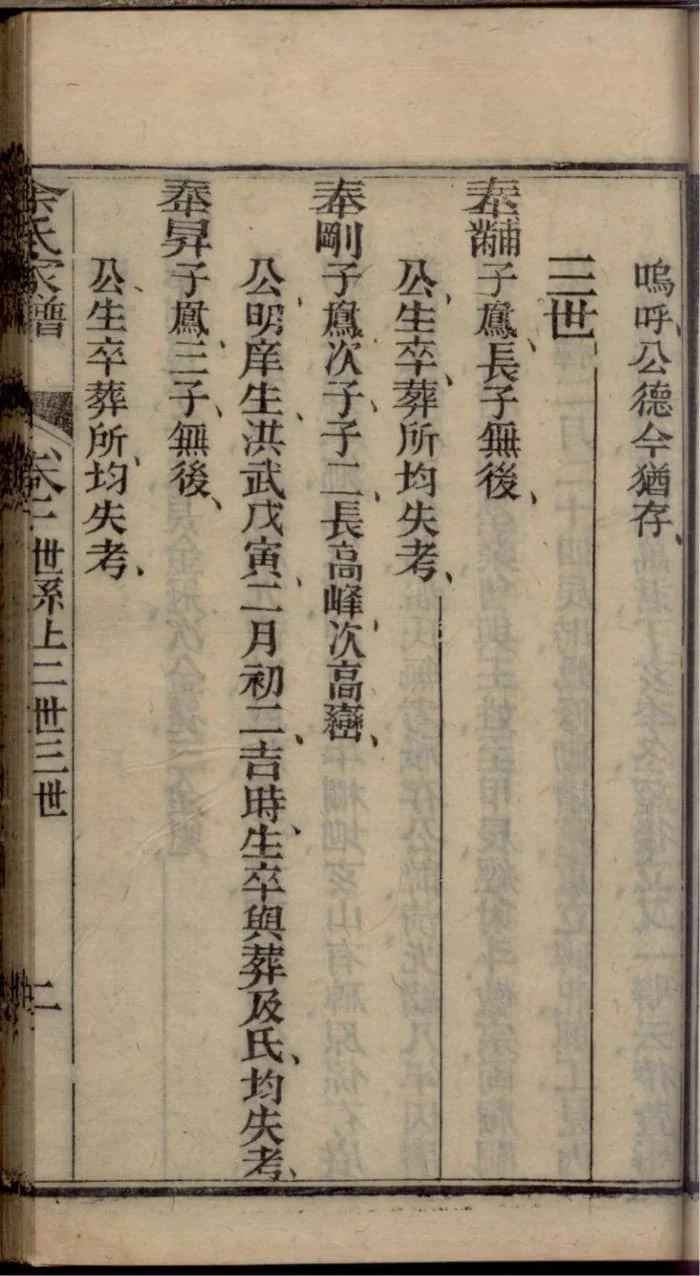 嗚呼公德今猶存
三世
奉黼子鳳長子無後
公生卒葬所均失考
奉剛子鳳次子子二長高峰次高
公明庠生洪武戊寅二月初二吉時生卒與葬及氏均失考
奉昇子鳳三子無後
公生卒葬所均失考
余氏家譜
世系上二世三世
二